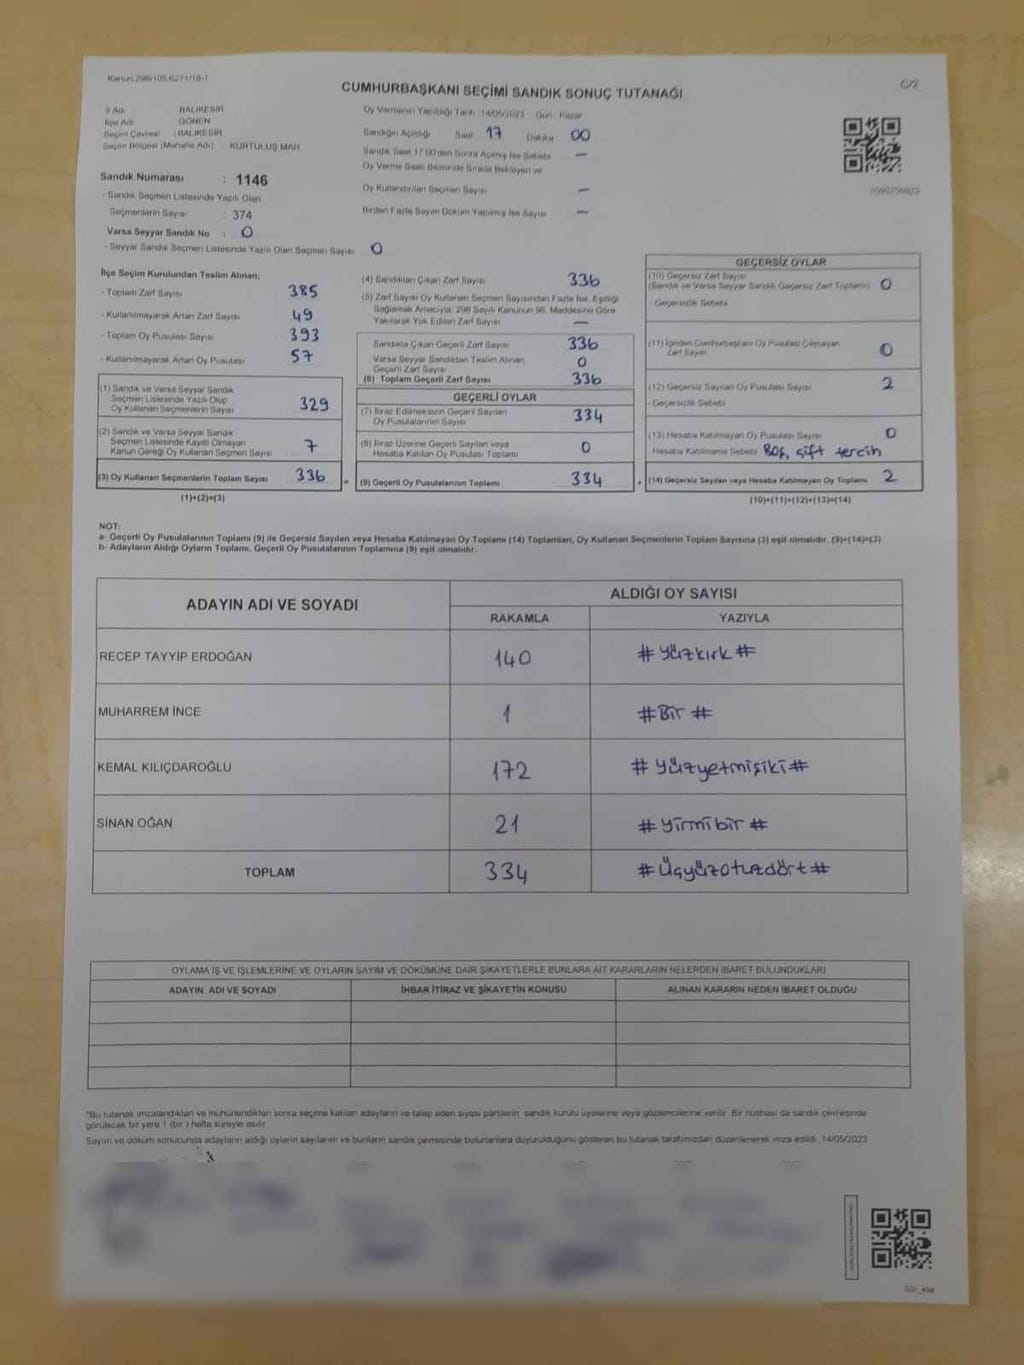 Kanun:298/105.6271/18-1
C/2
CUMHURBAŞKANI SEÇİMİ SANDIK SONUÇ TUTANAĞI
İl Adı BALIKESİR
İlçe Adı GÖNEN
Seçim Çevresi : BALIKESİR
Seçim Bölgesi (Mahalle Adı) : KURTULUŞ MAH
Oy Vermenin Yapıldığı Tarih 14/05/2023 Gün: Pazar
Sandığın Açıldığı Saat 17 Dakika 00
Sandık Saat 17:00'den Sonra Açılmış İse Sebebi —
Oy Verme Saati Bitiminde Sırada Bekleyen ve
Oy Kullandırılan Seçmen Sayısı —
Birden Fazla Sayım Döküm Yapılmış İse Sayısı —
Sandık Numarası : 1146
- Sandık Seçmen Listesinde Yazılı Olan
Seçmenlerin Sayısı : 374
Varsa Seyyar Sandık No : 0
- Seyyar Sandık Seçmen Listesinde Yazılı Olan Seçmen Sayısı 0
İlçe Seçim Kurulundan Teslim Alınan;
- Toplam Zarf Sayısı 385
- Kullanılmayarak Artan Zarf Sayısı 49
- Toplam Oy Pusulası Sayısı 393
- Kullanılmayarak Artan Oy Pusulası 57
(1) Sandık ve Varsa Seyyar Sandık
Seçmen Listesinde Yazılı Olup
Oy Kullanan Seçmenlerin Sayısı 329
(2) Sandık ve Varsa Seyyar Sandık
Seçmen Listesinde Kayıtlı Olmayan
Kanun Gereği Oy Kullanan Seçmen Sayısı 7
(3) Oy Kullanan Seçmenlerin Toplam Sayısı 336
(1)+(2)=(3)
(4) Sandıktan Çıkan Zarf Sayısı 336
(5) Zarf Sayısı Oy Kullanan Seçmen Sayısından Fazla İse, Eşitliği
Sağlamak Amacıyla; 298 Sayılı Kanunun 98. Maddesine Göre
Yakılarak Yok Edilen Zarf Sayısı —
Sandıkta Çıkan Geçerli Zarf Sayısı 336
Varsa Seyyar Sandıktan Teslim Alınan
Geçerli Zarf Sayısı 0
(6) Toplam Geçerli Zarf Sayısı 336
GEÇERLİ OYLAR
(7) İtiraz Edilmeksizin Geçerli Sayılan
Oy Pusulalarının Sayısı 334
(8) İtiraz Üzerine Geçerli Sayılan veya
Hesaba Katılan Oy Pusulası Toplamı 0
= (9) Geçerli Oy Pusulalarının Toplamı 334
GEÇERSİZ OYLAR
(10) Geçersiz Zarf Sayısı
(Sandık ve Varsa Seyyar Sandık Geçersiz Zarf Toplamı) 0
- Geçersizlik Sebebi
(11) İçinden Cumhurbaşkanı Oy Pusulası Çıkmayan
Zarf Sayısı 0
(12) Geçersiz Sayılan Oy Pusulası Sayısı 2
- Geçersizlik Sebebi
(13) Hesaba Katılmayan Oy Pusulası Sayısı 0
- Hesaba Katılmama Sebebi Boş, çift tercih
+ (14) Geçersiz Sayılan veya Hesaba Katılmayan Oy Toplamı 2
(10)+(11)+(12)+(13)=(14)
NOT:
a- Geçerli Oy Pusulalarının Toplamı (9) ile Geçersiz Sayılan veya Hesaba Katılmayan Oy Toplamı (14) Toplamları, Oy Kullanan Seçmenlerin Toplam Sayısına (3) eşit olmalıdır. (9)+(14)=(3)
b- Adayların Aldığı Oyların Toplamı, Geçerli Oy Pusulalarının Toplamına (9) eşit olmalıdır.
ADAYIN ADI VE SOYADI
ALDIĞI OY SAYISI
RAKAMLA YAZIYLA
RECEP TAYYİP ERDOĞAN 140 #Yüzkırk#
MUHARREM İNCE 1 #Bir#
KEMAL KILIÇDAROĞLU 172 #Yüzyetmişiki#
SİNAN OĞAN 21 #Yirmibir#
TOPLAM 334 #Üçyüzotuzdört#
OYLAMA İŞ VE İŞLEMLERİNE VE OYLARIN SAYIM VE DÖKÜMÜNE DAİR ŞİKAYETLERLE BUNLARA AİT KARARLARIN NELERDEN İBARET BULUNDUKLARI
ADAYIN ADI VE SOYADI İHBAR İTİRAZ VE ŞİKAYETİN KONUSU ALINAN KARARIN NEDEN İBARET OLDUĞU
*Bu tutanak imzalandıktan ve mühürlendikten sonra seçime katılan adayların ve talep eden siyasi partilerin sandık kurulu üyelerine veya gözlemcilerine verilir. Bir nüshası da sandık çevresinde
görülecek bir yere 1 (bir) hafta süreyle asılır
Sayım ve döküm sonucunda adayların aldığı oyların sayılarını ve bunların sandık çevresinde bulunanlara duyurulduğunu gösteren bu tutanak tarafımızdan düzenlenerek imza edildi. 14/05/2023